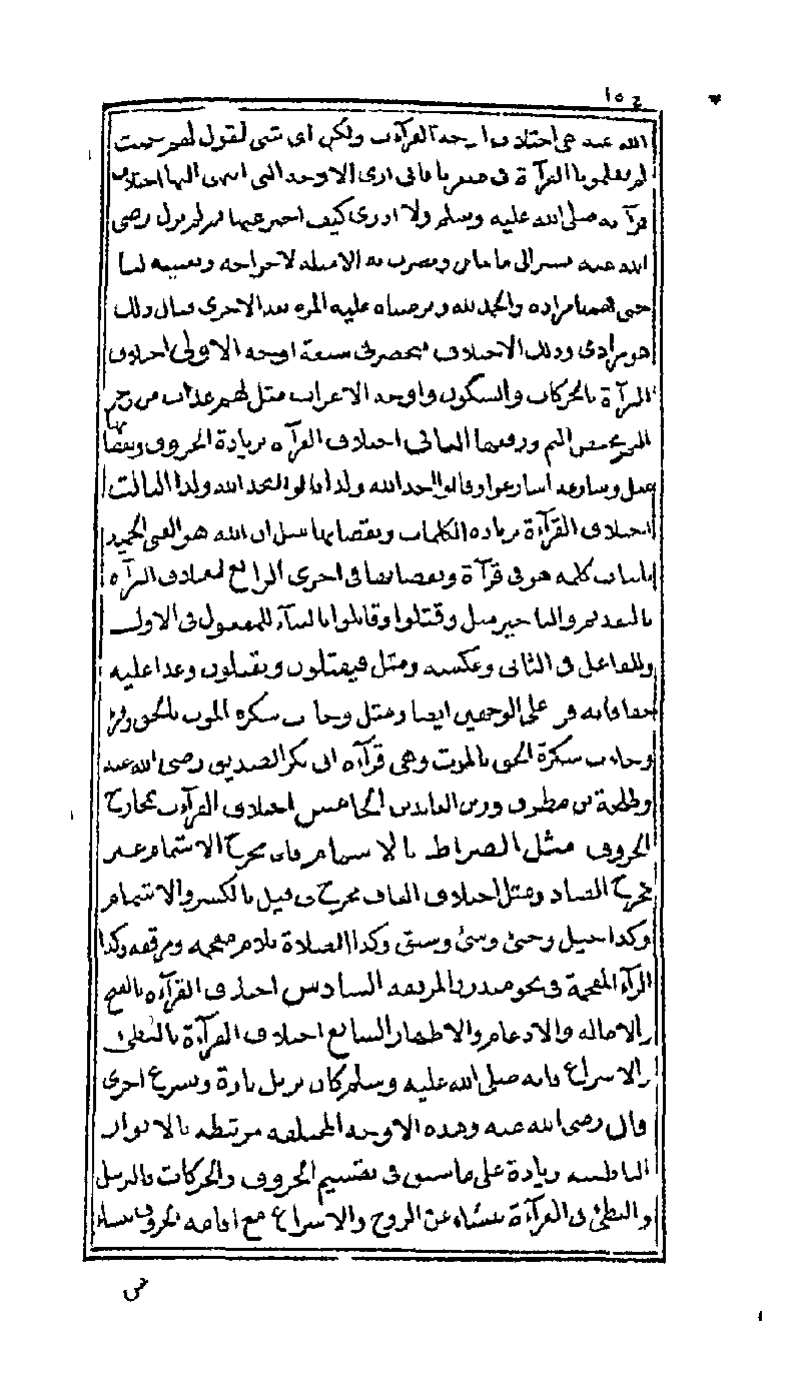 الله عنه هي اختلافات أوجه القرآءت ولكن اي شي نقول لهم حيث
لم يعلموا القرآءة في صغرنا فاني ارى الاوجه التي انتهى اليها اختلاف
قرآءته صلى الله عليه وسلم ولا ادرى كيف اعبر عنها فلم يزل رضى
الله عنه يشير الى ما ونضرب له الامثلة لاخراجه وتعيينه لنا
حتى فهمنا مراده والحمد لله وعرضناه عليه المرة بعد الاخرى فقال ذلك
هو مرادى وذلك الاختلاف ينحصر فى سبعة اوجه الاولى اختلاف
القرآءة بالحركات والسكون واوجه الاعراب مثل لهم عذاب من رجز
اليم بخفض اليم ورفعها الثانى اختلاف القرآءة بزيادة الحروف ونقصانها
مثل وسارعوا سارعوا وقالوا اتخذ الله ولدا قالوا اتخذ الله ولدا الثالث
اختلاف القرآءة بزيادة الكلمات ونقصانها مثل ان الله هو الغنى الحميد
باثبات كلمة هو فى قرآءة ونقصانها فى اخرى الرابع اختلاف القرآءة
بالتقديم والتاخير مثل وقتلوا وقاتلوا بالبنآء للمفعول فى الاول
وللفاعل فى الثانى وعكسه ومثل فيقتلون ويقتلون وعدا عليه
حقا فانه قر على الوجهين ايضا ومثل وجات سكرة الموت بالحق وقر
وجاءت سكرة الحق بالموت وهى قرآءة ابى بكر الصديق رضى الله عنه
وطلحة بن مطرف وزين العابدين الخامس اختلاف القرآءت بمخارج
الحروف مثل الصراط بالاشمام فان مخرج الاشمام غير
مخرج الصاد ومثل اختلاف القاف مخرج فى قيل بالكسر والاشمام
وكذا حيل وجئ وسئ وسيق وكذا الصلاة بلام مفخمة ومرققة وكذا
الرآء المفخمة فى نحو منذر بالمرققة السادس اختلاف القرآءة بالفتح
والامالة والادغام والاظهار السابع اختلاف القرآءة بالبطئ
والاسراع فانه صلى الله عليه وسلم كان يرتل تارة ويسرع اخرى
قال رضى الله عنه وهذه الاوجه المختلفة مرتبطة بالانوار
الباطنية زيادة على ما سبق فى تقسيم الحروف والحركات فالترتيل
والبطئ فى القرآءة ينشأ عن الروح والاسراع مع اقامة الحروف ينشأ